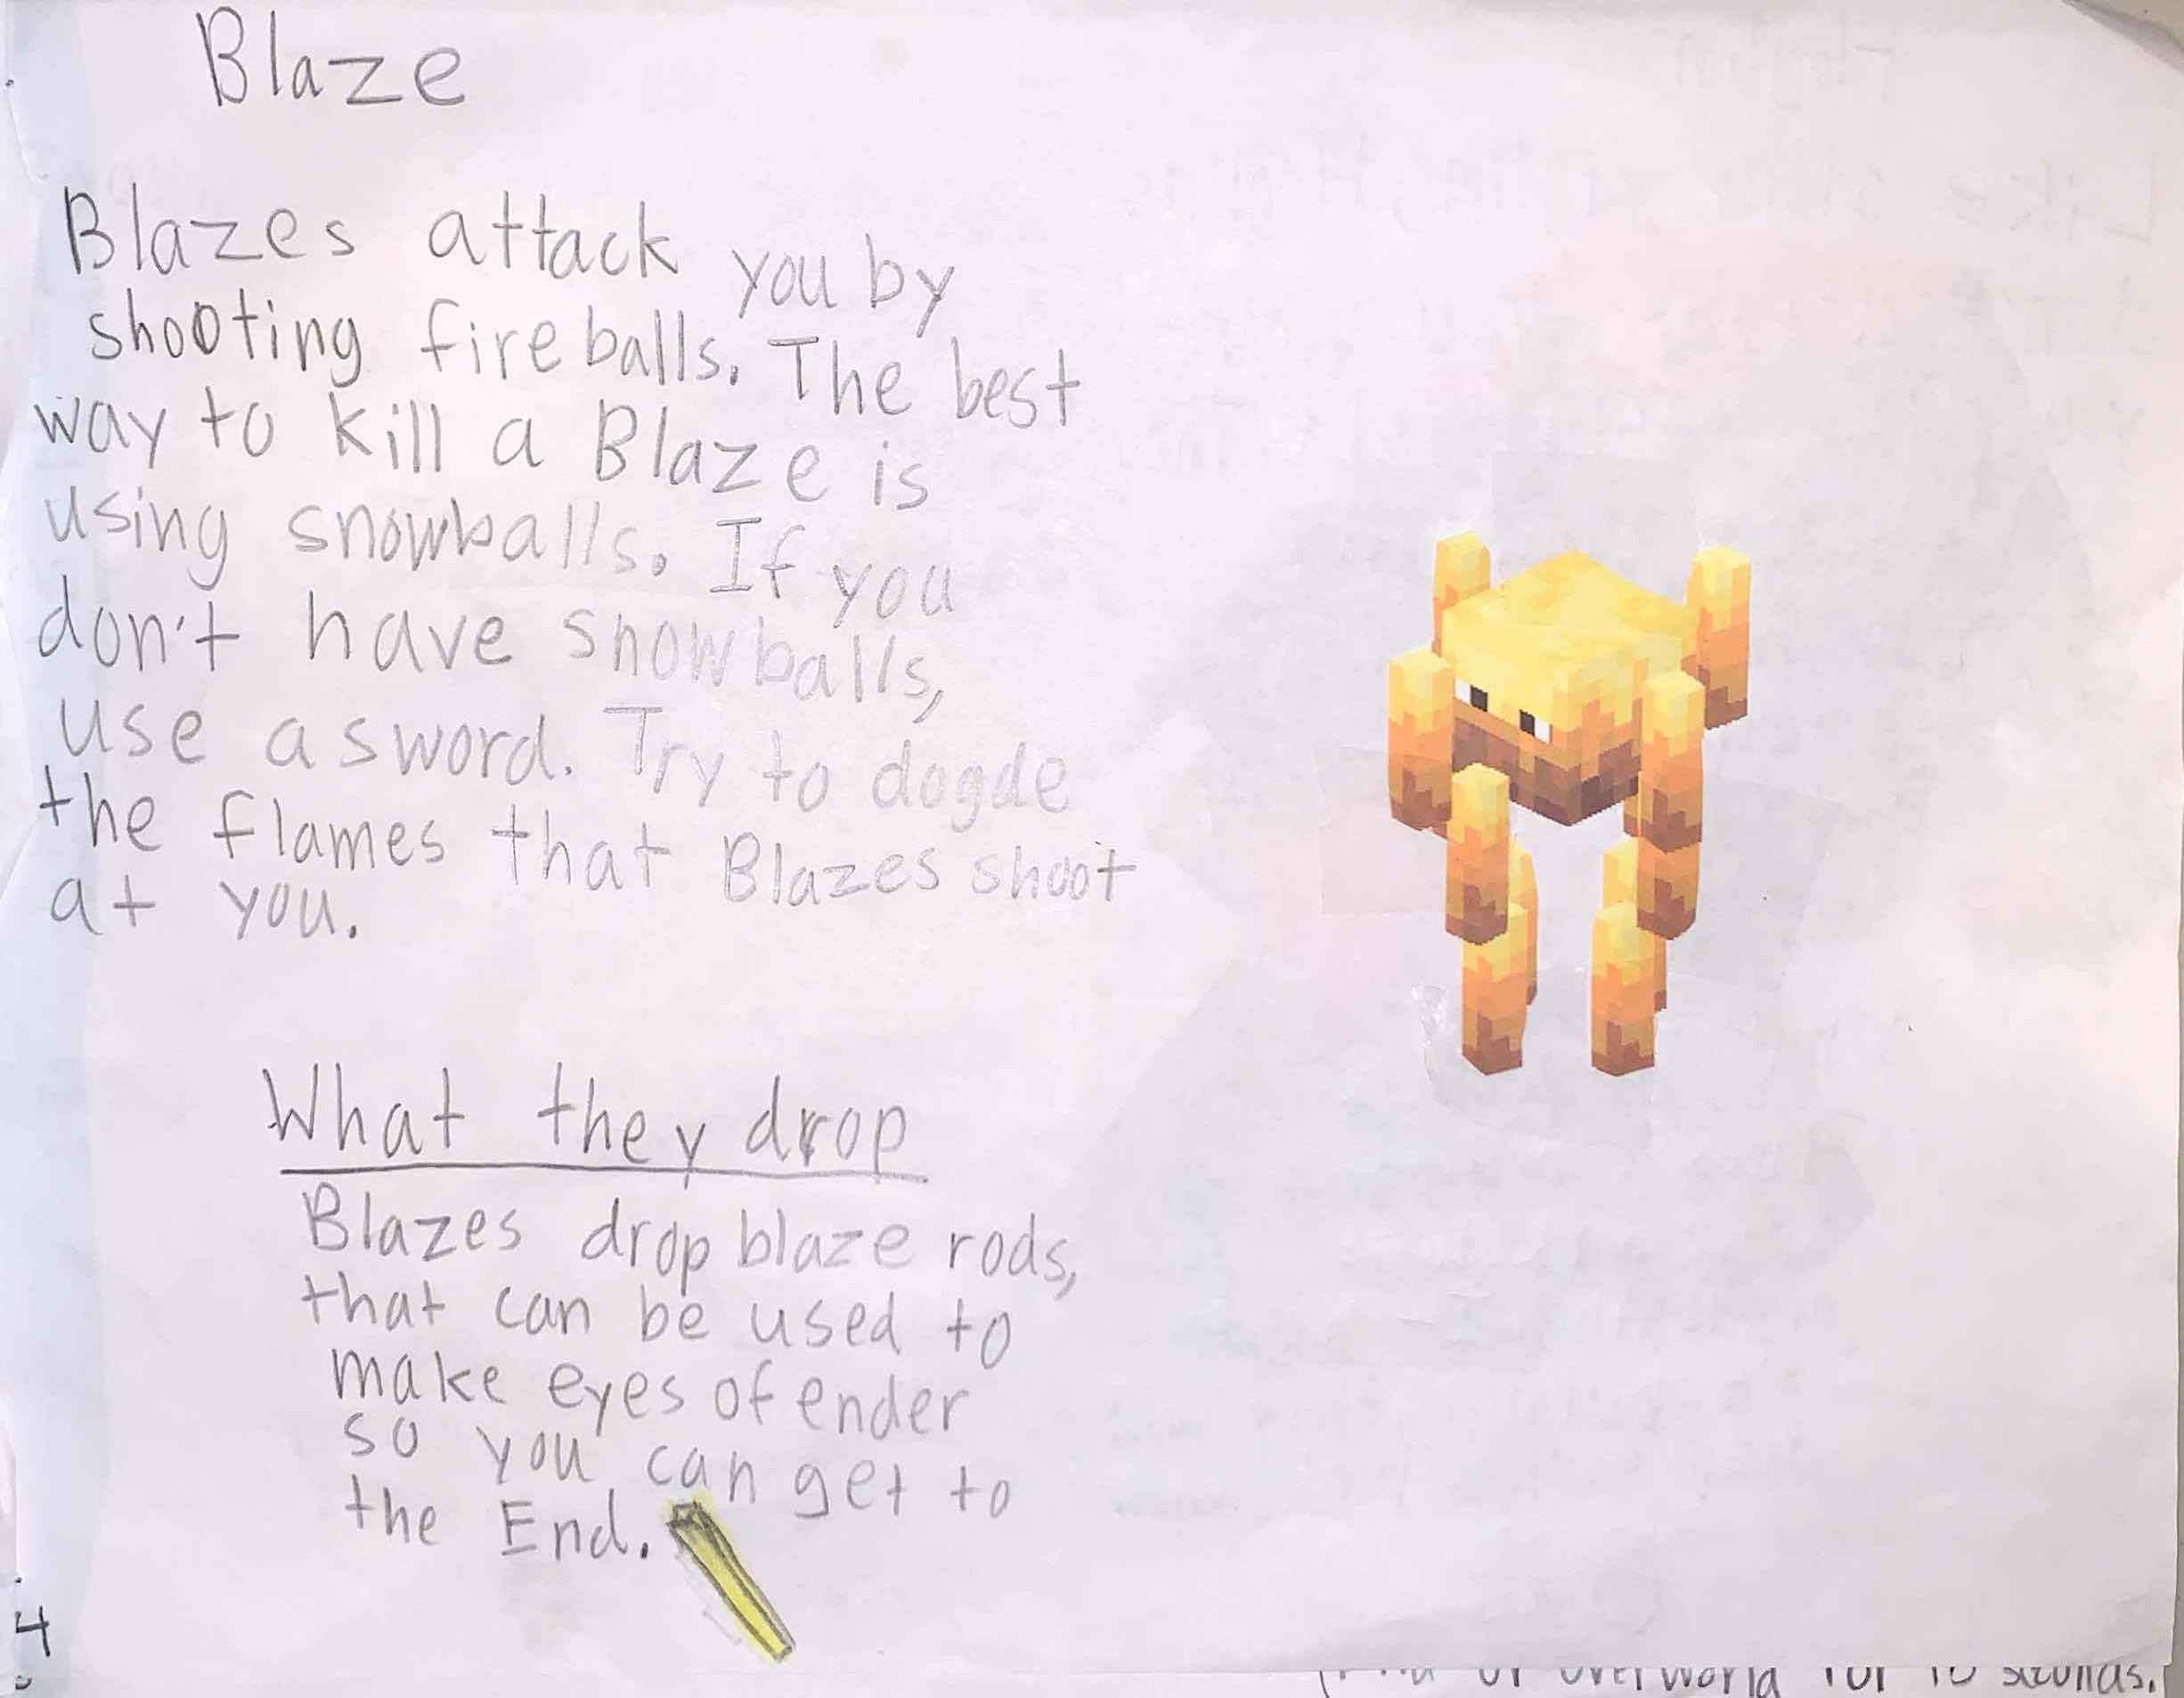 Blaze
Blazes attack you by
shooting fireballs. The best
way to kill a Blaze is
using snowballs. If you
don't have snowballs,
use a sword. Try to dogde
the flames that Blazes shoot
at you.
What they drop
Blazes drop blaze rods,
that can be used to
make eyes of ender
so you can get to
the End.
4
or overworld for 10 seconds.